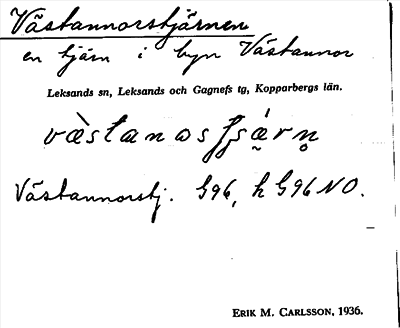 Västannorstjärnen
en tjärn i byn Västannor
Leksands sn, Leksands och Gagnefs tg, Kopparbergs län.
Västannorstj. G96, h G96 NO.
ERIK M. CARLSSON, 1936.